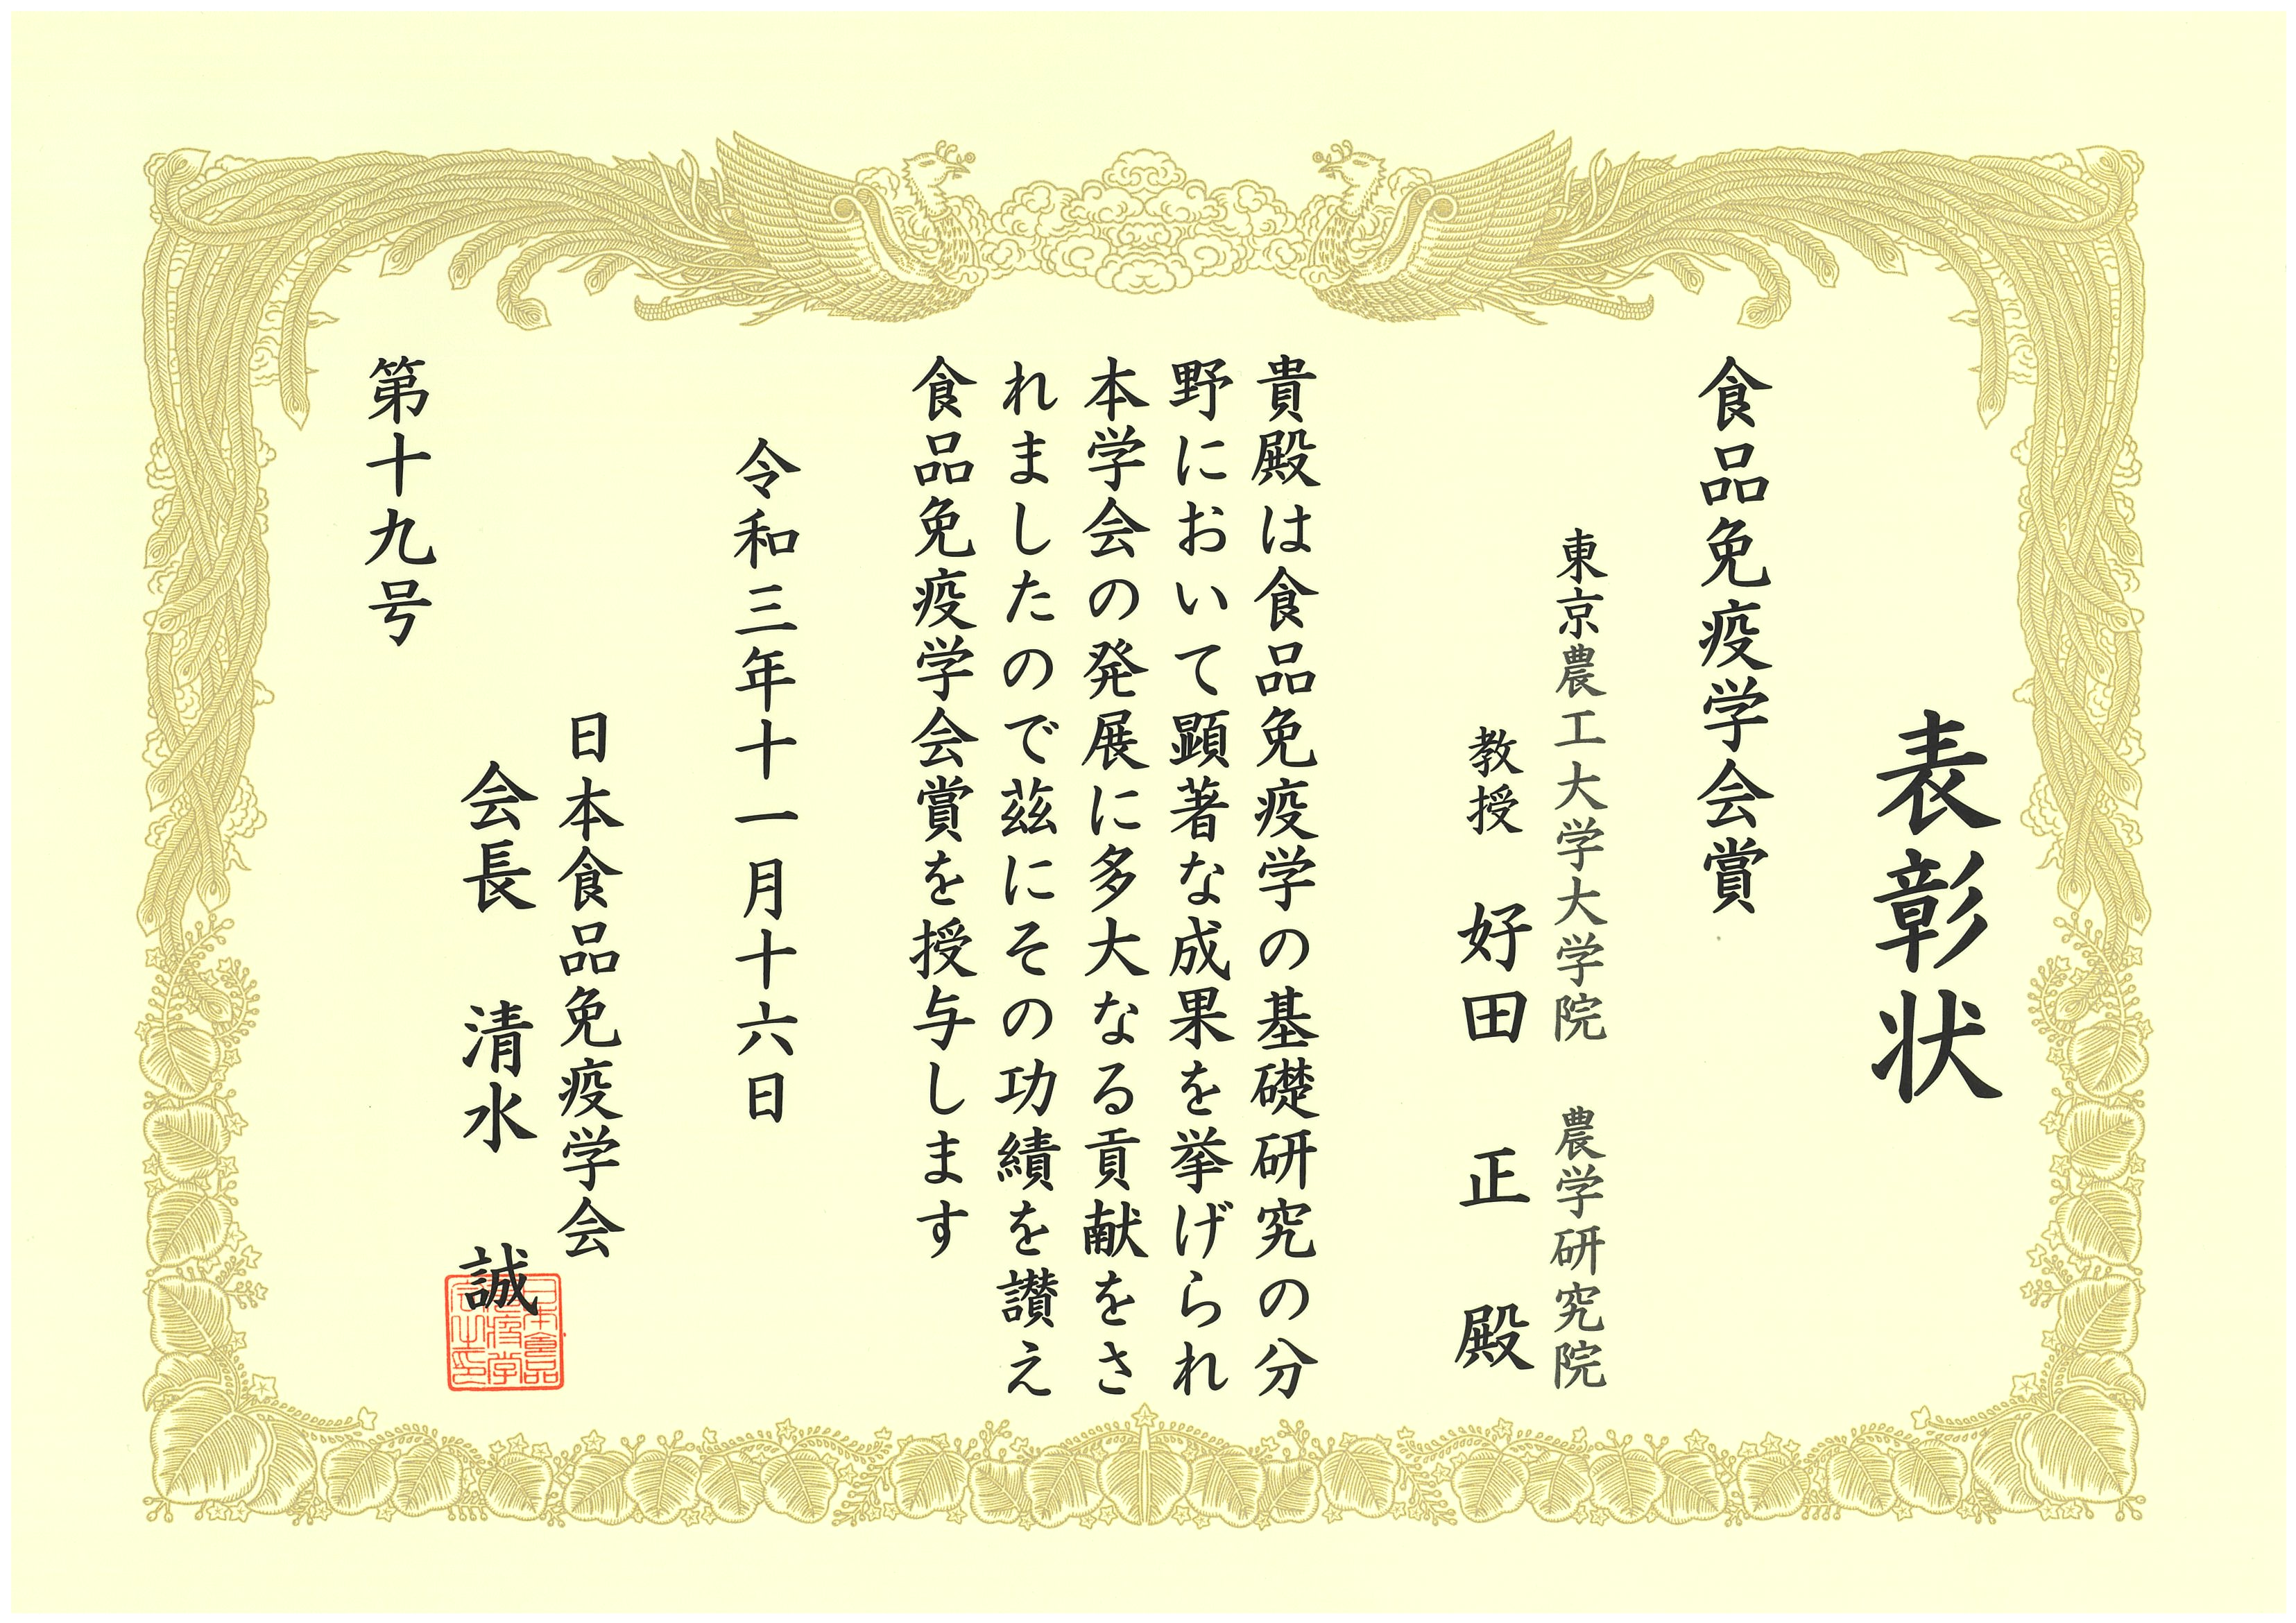 表彰状
食品免疫学会賞
東京農工大学大学院 農学研究院
教授 好田 正 殿
貴殿は食品免疫学の基礎研究の分
野において顕著な成果を挙げられ
本学会の発展に多大なる貢献をさ
れましたので茲にその功績を讃え
食品免疫学会賞を授与します
令和三年十一月十六日
日本食品免疫学会
会長 清水 誠
第十九号